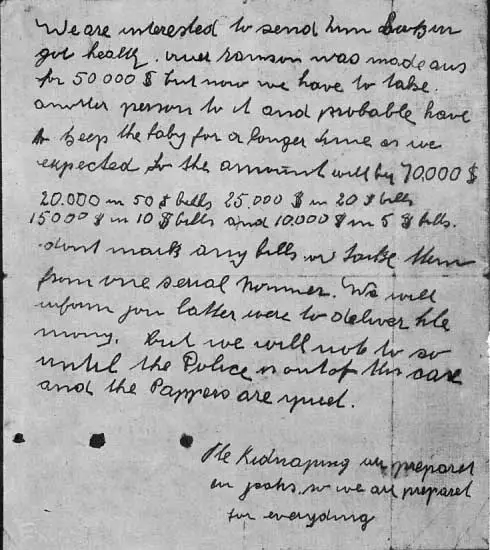 We are interested to send him back in
gut health. ouer ransom was made aus
for 50000 $ but now we have to take
another person to it and probable have
to keep the baby for a longer time as we
expected So the amount will by 70,000 $
20.000 in 50 $ bills 25.000 $ in 20 $ bills
15000 $ in 10 $ bills and 10.000 $ in 5 $ bills.
dont mark any bills or take them
from one serial nommer. We will
inform you latter were to deliver the
mony. but we will not to so
until the Police is out of this case
and the Pappers are quiet.
The Kidnaping prepared
so we are prepared
for everyding